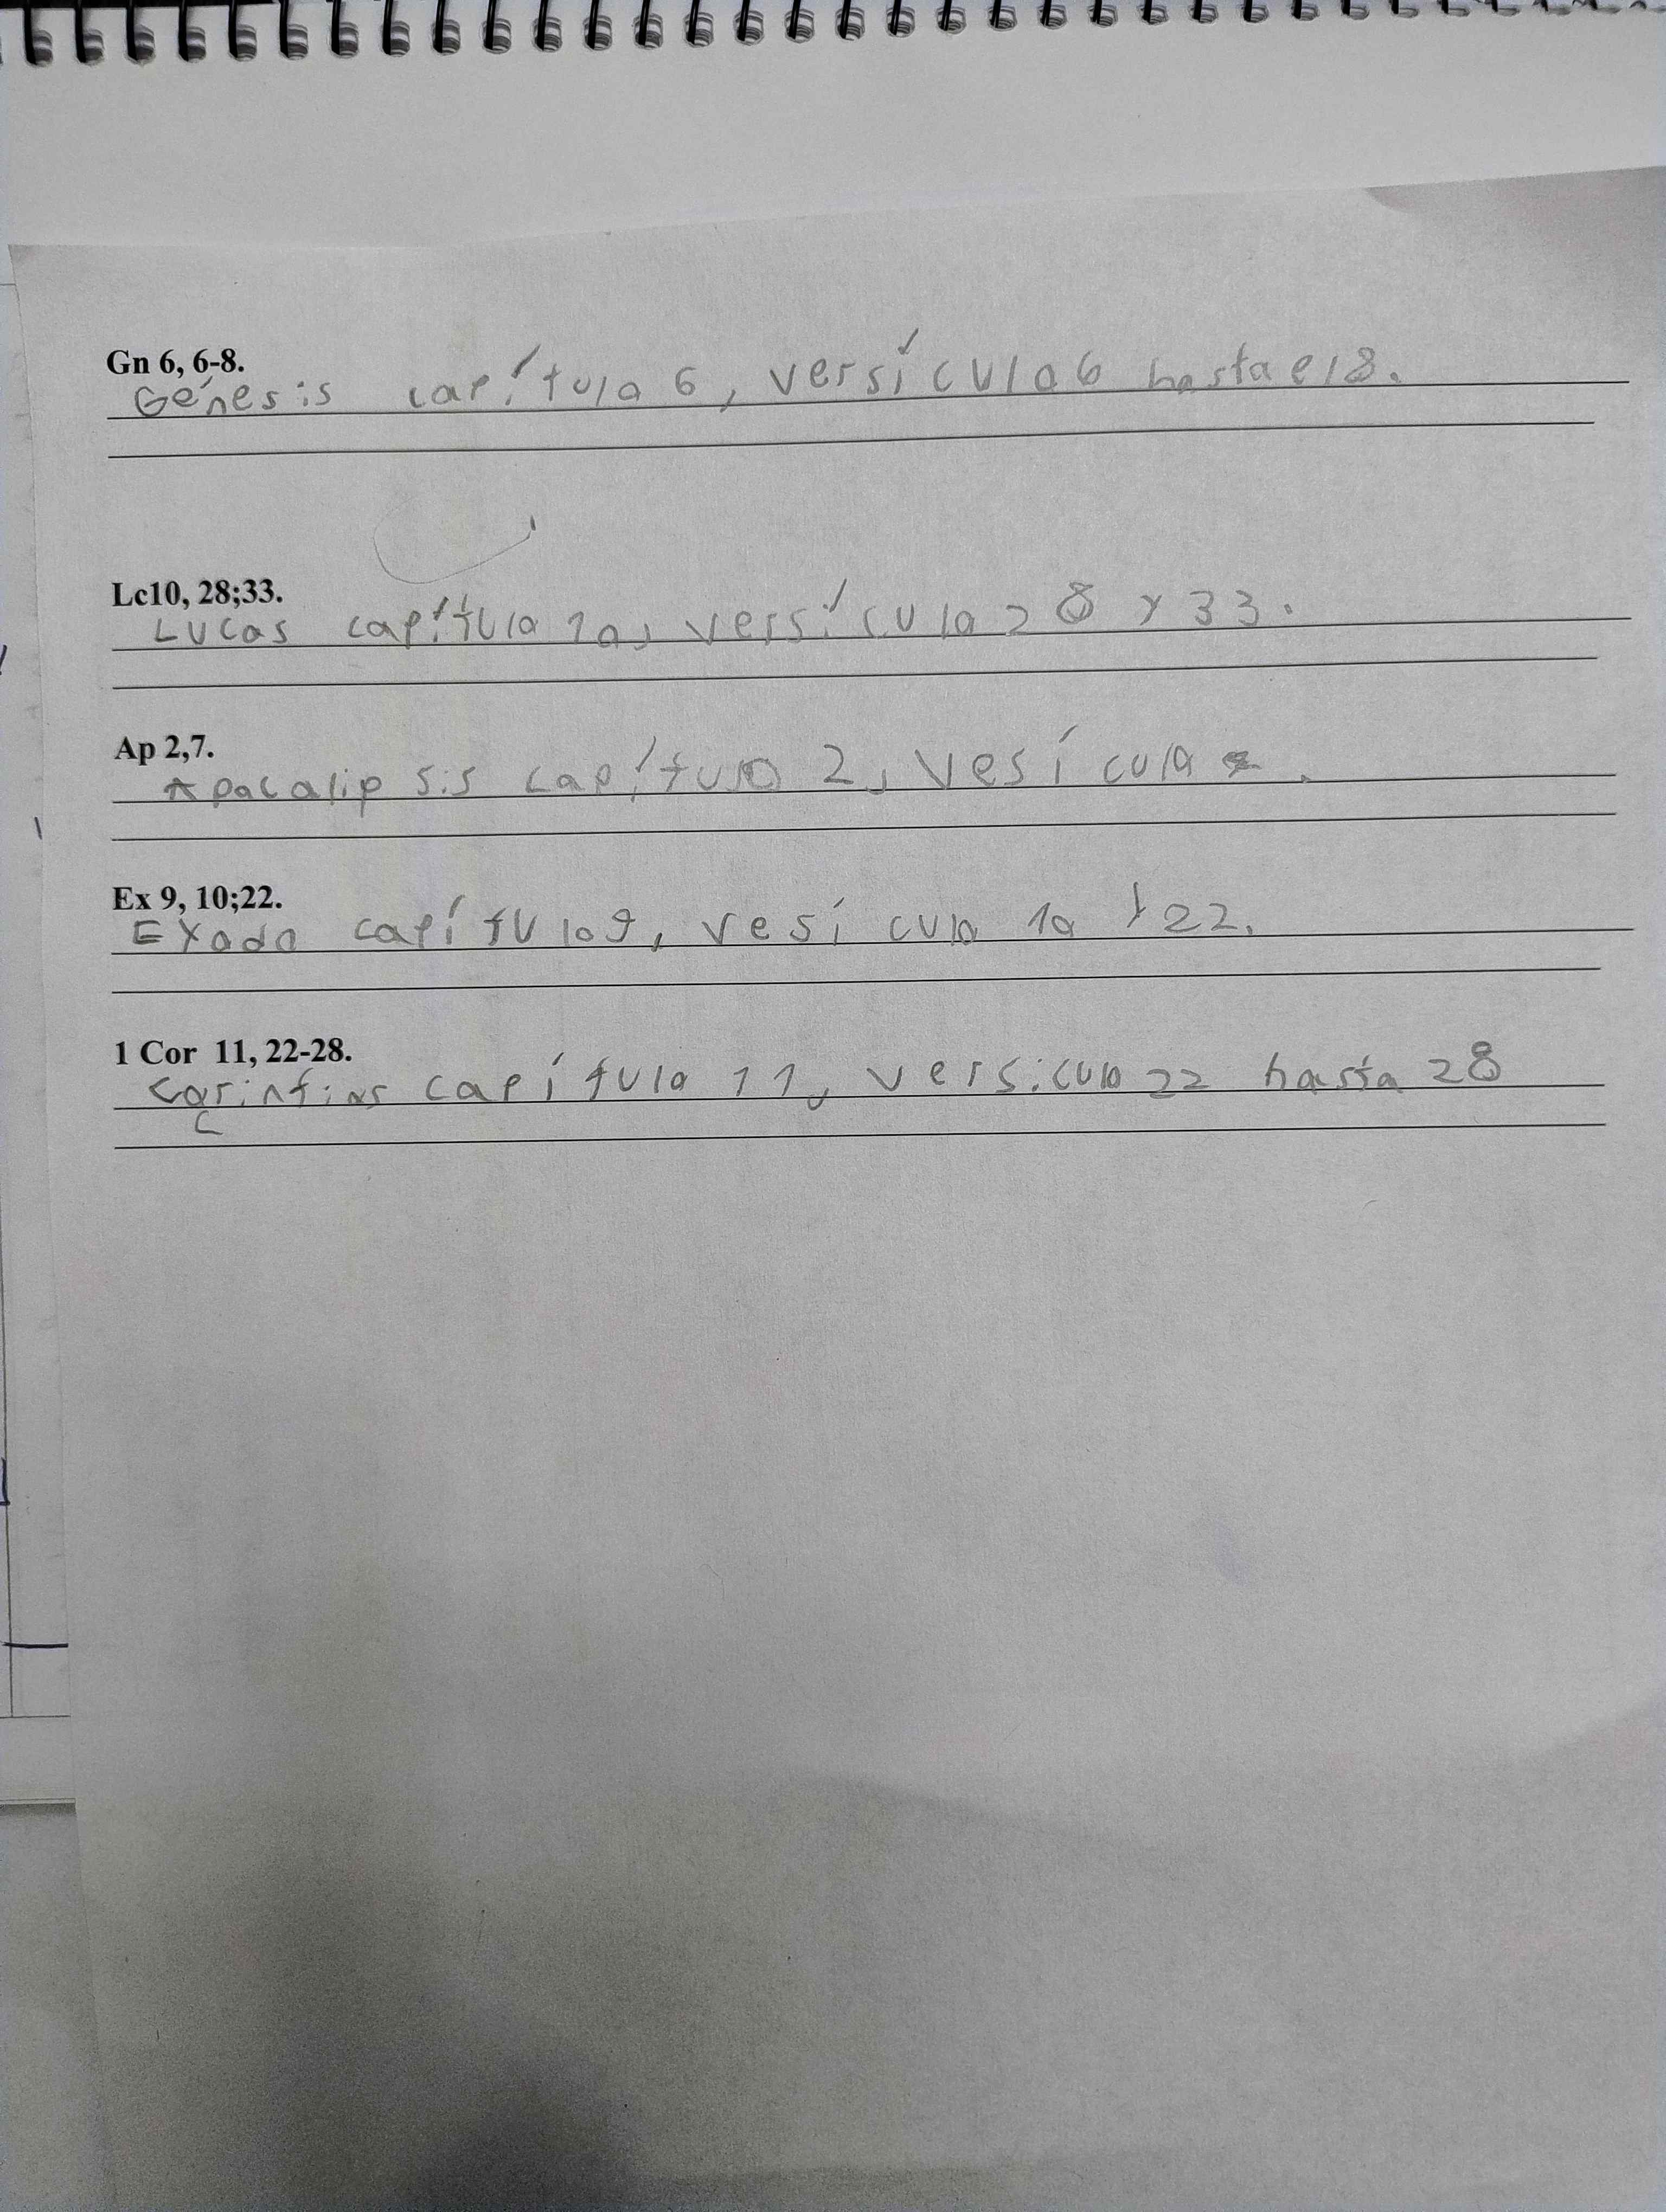 Gn 6, 6-8.
Génesis capítulo 6, versículo 6 hasta el 8.
Lc10, 28;33.
Lucas capítulo 10, versículo 28 y 33.
Ap 2,7.
Apocalipsis capítulo 2, vesículo
Ex 9, 10;22.
Exodo capítulo 9, vesículo 10 y 22.
1 Cor 11, 22-28.
Corintios capítulo 11, versiculo 22 hasta 28